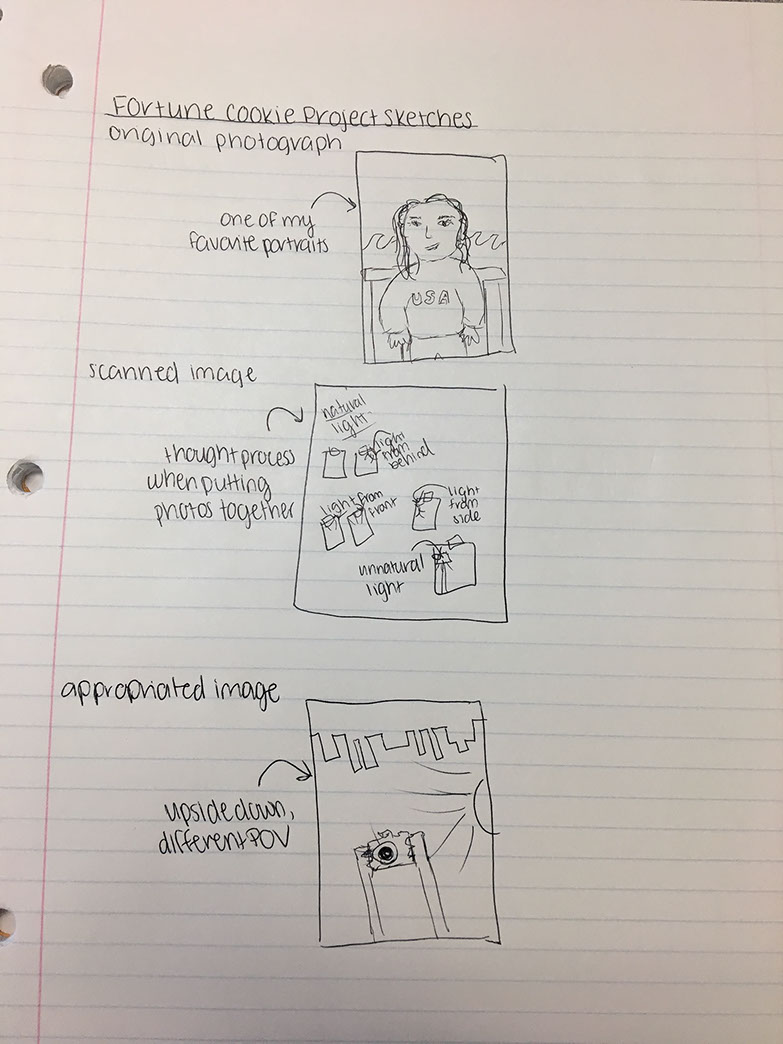 Fortune Cookie Project Sketches
original photograph
one of my
favorite portraits
USA
scanned image
thought process
when putting
photos together
natural
light
light
from
behind
light from
front
light
from
side
unnatural
light
appropriated image
upside down,
different POV